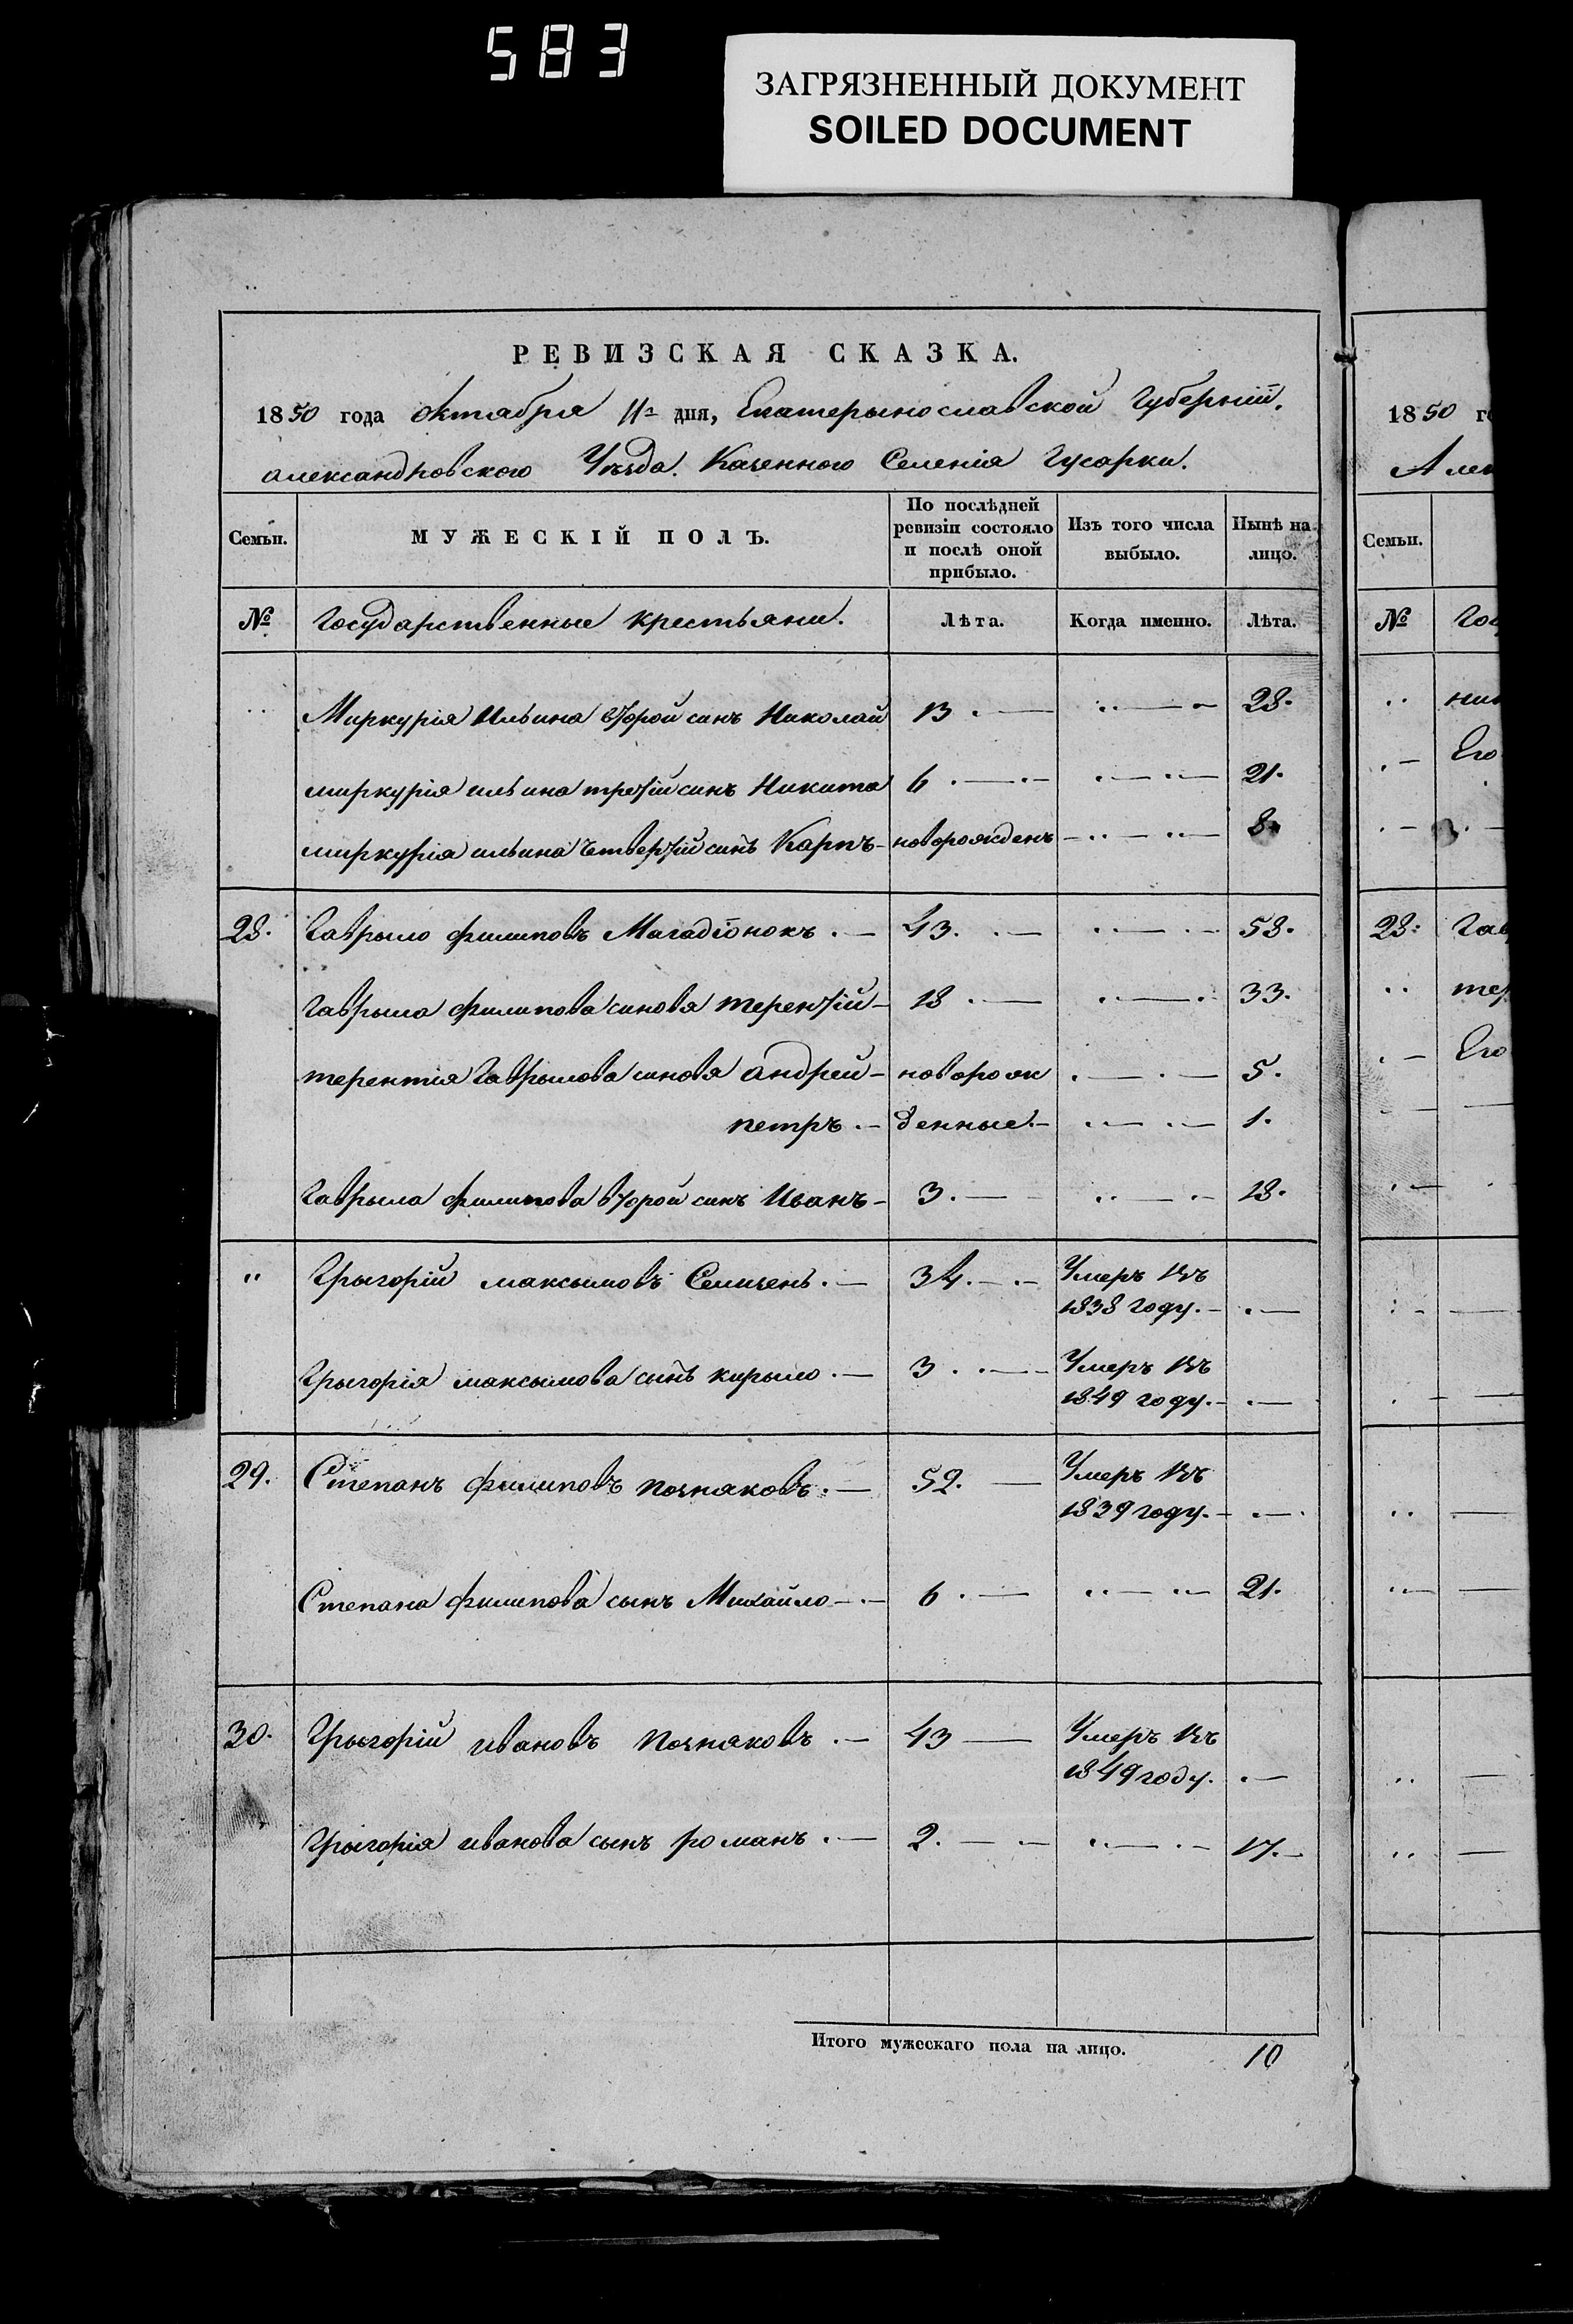 583
ЗАГРЯЗНЕННЫЙ ДОКУМЕНТ
SOILED DOCUMENT
РЕВИЗСКАЯ СКАЗКА.
1850 года октября 11го дня, Екатерынославской Губерніи.
александровского Уѣзда. Казенного Селенія Гусарки.
Семьи. МУЖЕСКІЙ ПОЛЪ. По послѣдней ревизіи состояло и послѣ оной прибыло. Изъ того числа выбыло. Нынѣ на лицо.
№ Государственные крестьяни. Лѣта. Когда именно. Лѣта.
Миркурія Ильина второй синъ Николай 13 28.
миркурія ильина третій синъ Никита 6 21.
миркурія ильина Четвертій синъ Карпъ новорожденъ 8
28. Гаврыло филиповъ Магадіонокъ 43. 58.
Гаврыла филипова синовя терентій 18 33.
терентия Гаврылова синовя андрей новорож 5.
петръ денные 1.
Гаврыла филипова второй синъ Иванъ 3. 18.
" Грыгорій максымовъ Семичень 34. Умеръ въ
1838 году.
Грыгорія максымова сынъ кирыло 3. Умеръ въ
1849 году.
29. Степанъ филиповъ 52. Умеръ въ
1839 году.
Степана филипова сынъ Михайло 6. 21.
30. Грыгорій ивановъ 43 Умеръ въ
1849 году.
Грыгорія иванова сынъ романъ 2. 17.
Итого мужескаго пола на лицо. 10
1850 го
Алек
Семьи.
№ Гос
Его
28. Гав
тер
Его